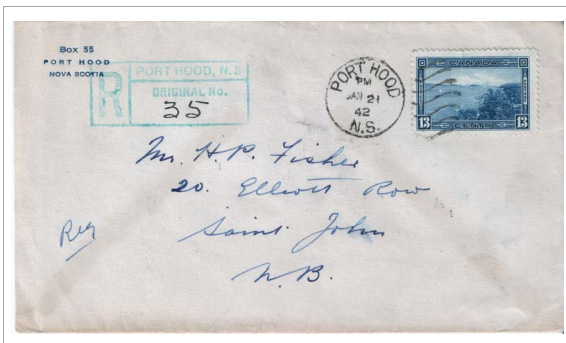 Box 55
PORT HOOD
NOVA SCOTIA
R
PORT HOOD, N.S
ORIGINAL No.
35
PORT HOOD
PM
JAN 21
42
N.S.
CANADA
13 CENTS 13
Mr. H. P. Fisher
20. Elliott Row
Saint John
N.B.
Reg